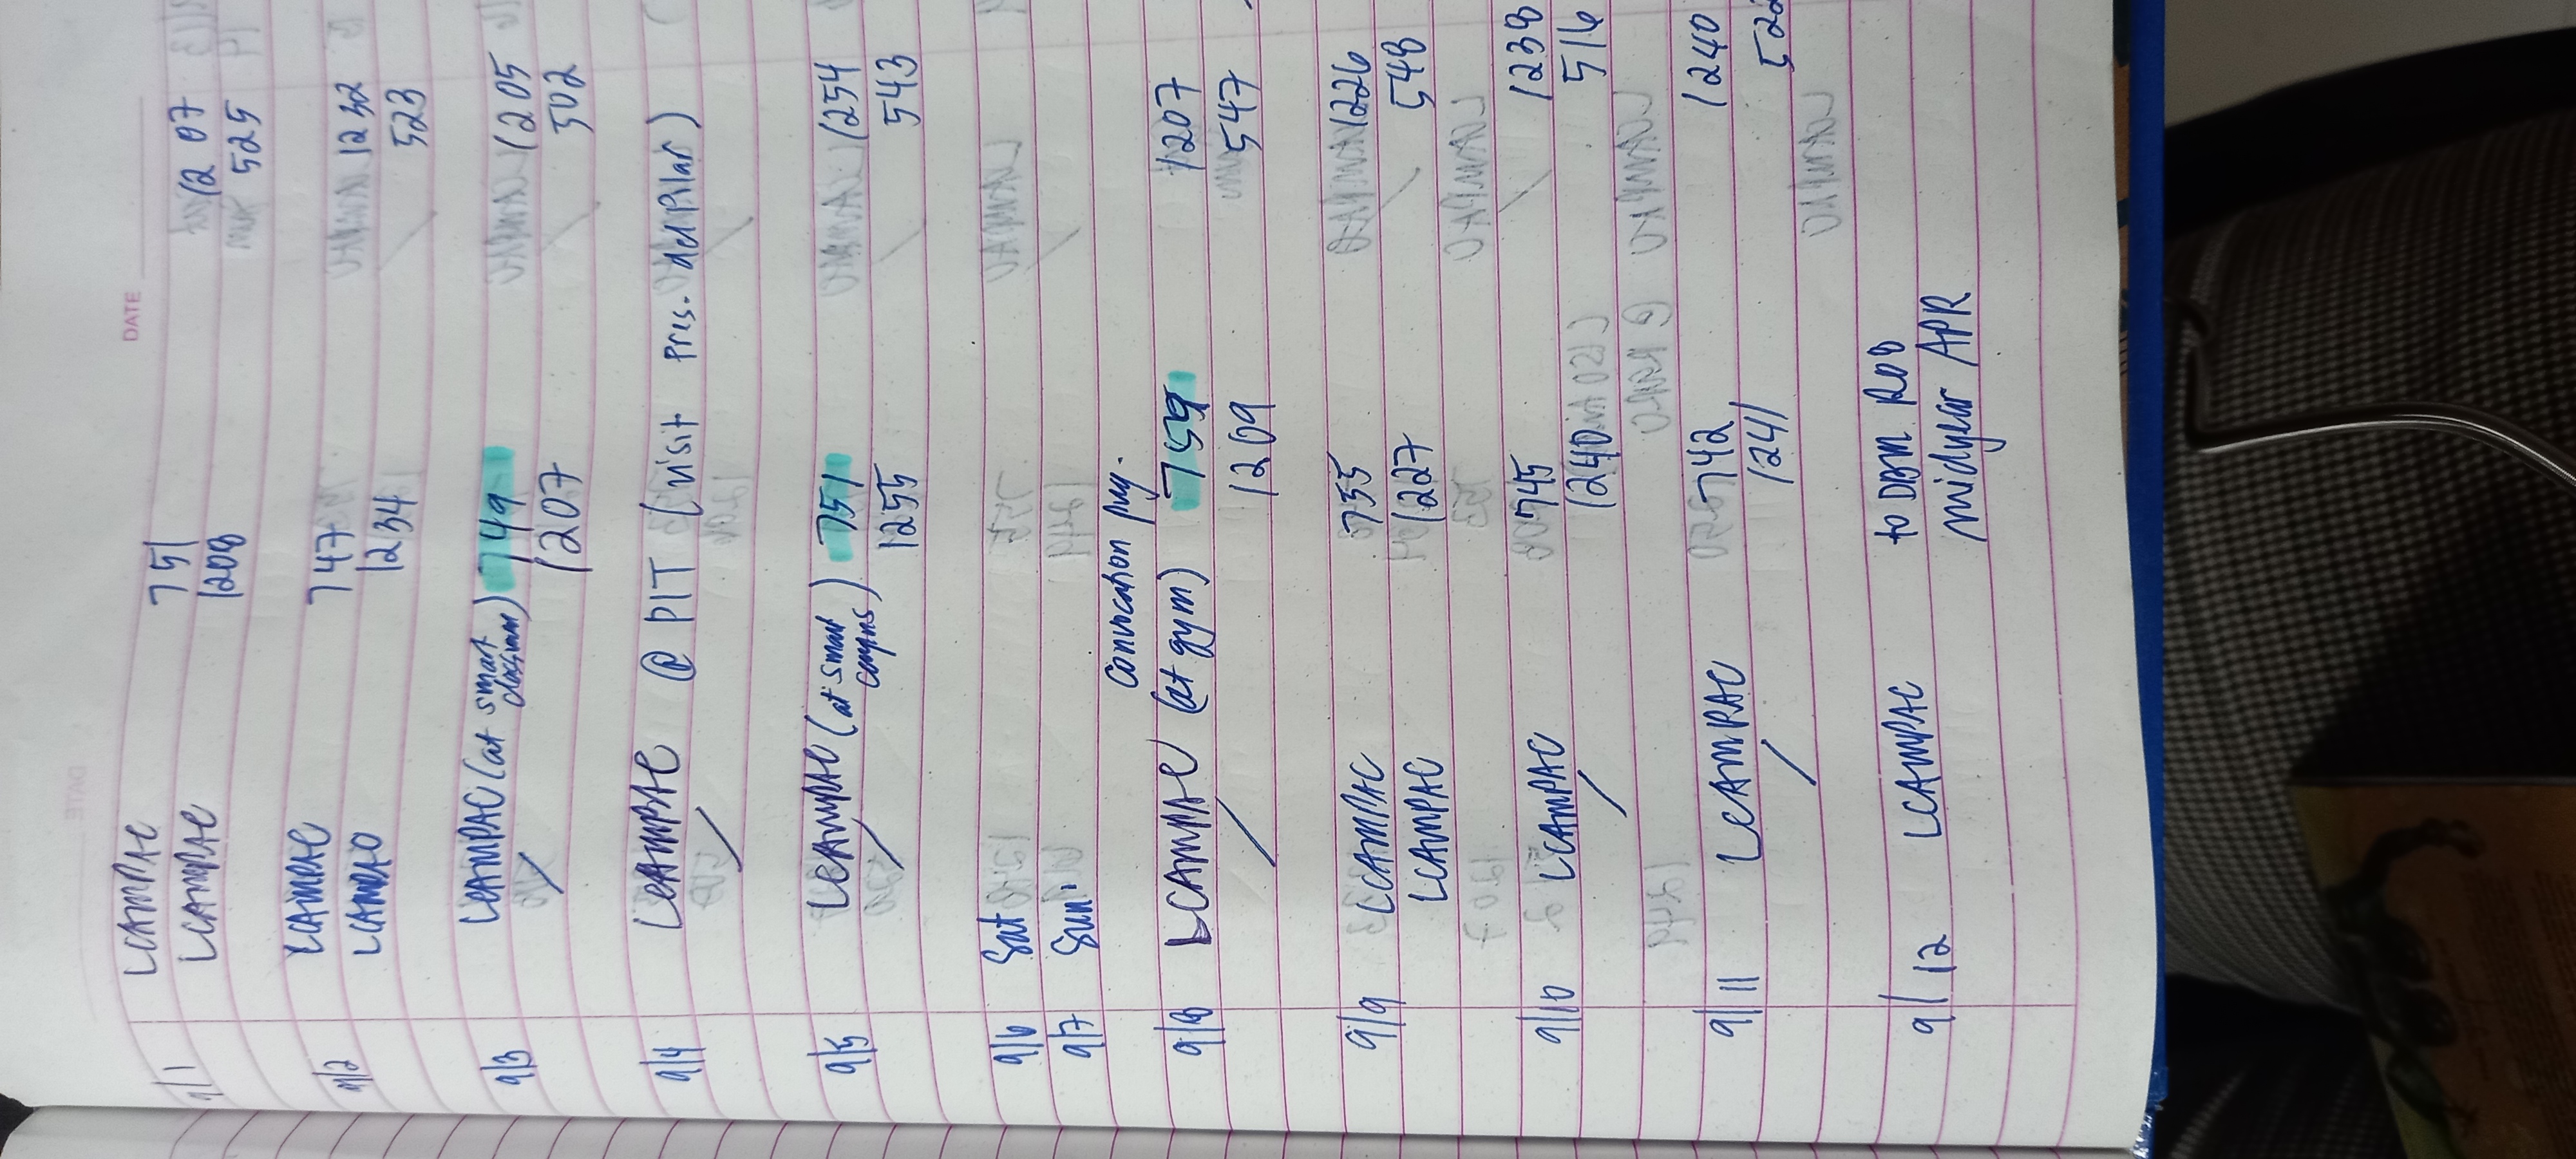 DATE
LCAMPAC 751 1207
9/1 LCAMPAC 1208 525
LCAMPAC 747 1232
9/2 LCAMPAC 1234 523
9/3 LCAMPAC (at smart classroom) 749 1205
1207 502
9/4 LCAMPAC @ PIT (visit Pres. del Pilar)
9/5 LCAMPAC (at smart campus) 751 1254
1255 543
9/6 Sat
9/7 Sun.
Convocation prog.
9/8 LCAMPAC (at gym) 759 1207
1209 547
9/9 LCAMPAC 735 1226
LCAMPAC 1227 548
9/10 LCAMPAC 745 1238
1240 516
9/11 LCAMPAC 742 1240
1241 522
9/12 LCAMPAC to DBM RO8
midyear APR